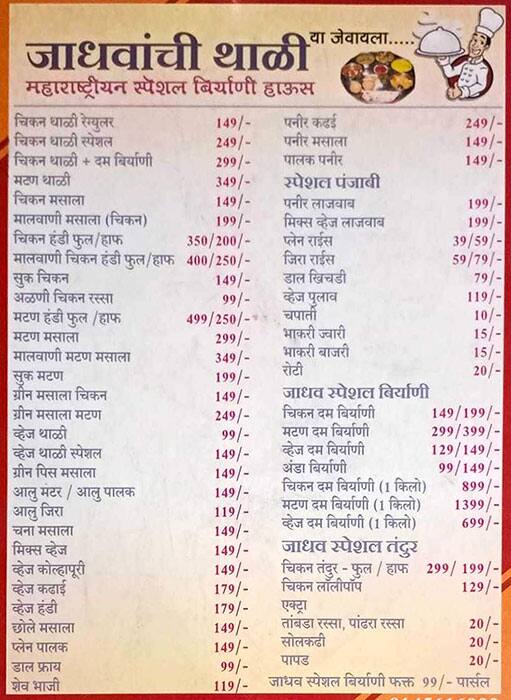 या जेवायला.....
जाधवांची थाळी
महाराष्ट्रीयन स्पेशल बिर्याणी हाऊस
चिकन थाळी रेग्युलर 149/-
चिकन थाळी स्पेशल 249/-
चिकन थाळी + दम बिर्याणी 299/-
मटण थाळी 349/-
चिकन मसाला 149/-
मालवाणी मसाला (चिकन) 199/-
चिकन हंडी फुल/हाफ 350/200/-
मालवाणी चिकन हंडी फुल/हाफ 400/250/-
सुक चिकन 149/-
अळणी चिकन रस्सा 99/-
मटण हंडी फुल /हाफ 499/250/-
मटण मसाला 299/-
मालवाणी मटण मसाला 349/-
सुक मटण 199/-
ग्रीन मसाला चिकन 149/-
ग्रीन मसाला मटण 249/-
व्हेज थाळी 99/-
व्हेज थाळी स्पेशल 149/-
ग्रीन पिस मसाला 149/-
आलु मटर / आलु पालक 149/-
आलु जिरा 119/-
चना मसाला 149/-
मिक्स व्हेज 149/-
व्हेज कोल्हापूरी 149/-
व्हेज कढाई 179/-
व्हेज हंडी 179/-
छोले मसाला 149/-
प्लेन पालक 149/-
डाल फ्राय 99/-
शेव भाजी 119/-
पनीर कढई 249/-
पनीर मसाला 149/-
पालक पनीर 149/-
स्पेशल पंजाबी
पनीर लाजवाब 199/-
मिक्स व्हेज लाजवाब 199/-
प्लेन राईस 39/59/-
जिरा राईस 59/79/-
डाल खिचडी 79/-
व्हेज पुलाव 119/-
चपाती 10/-
भाकरी ज्वारी 15/-
भाकरी बाजरी 15/-
रोटी 20/-
जाधव स्पेशल बिर्याणी
चिकन दम बिर्याणी 149/199/-
मटण दम बिर्याणी 299/399/-
व्हेज दम बिर्याणी 129/149/-
अंडा बिर्याणी 99/149/-
चिकन दम बिर्याणी (1 किलो) 899/-
मटण दम बिर्याणी (1 किलो) 1399/-
व्हेज दम बिर्याणी (1 किलो) 699/-
जाधव स्पेशल तंदुर
चिकन तंदुर - फुल / हाफ 299/ 199/-
चिकन लॉलीपॉप 129/-
एक्ट्रा
तांबडा रस्सा, पांढरा रस्सा 20/-
सोलकढी 20/-
पापड 20/-
जाधव स्पेशल बिर्याणी फक्त 99/- पार्सल